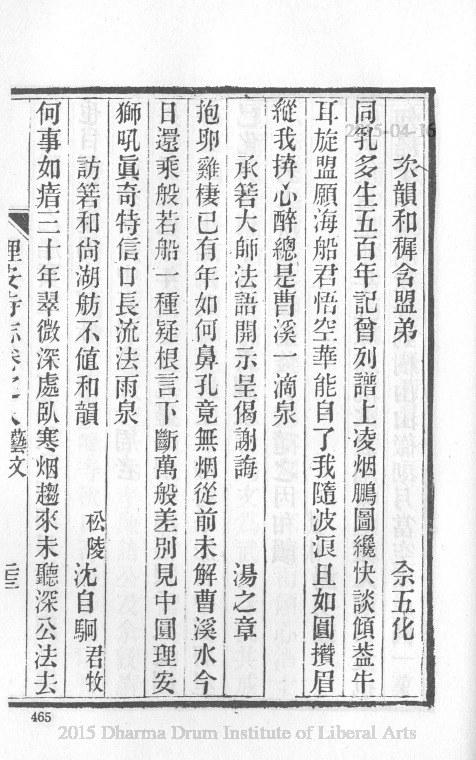 次韻和穉含盟弟　佘五化
同乳多生五百年記曾列譜上凌烟鵬圖纔快談傾葢牛
耳旋盟願海船君悟空華能自了我隨波浪且如圓攢眉
縱我拚心醉總是曹溪一滴泉
承箬大師法語開示呈偈謝誨　湯之章
抱卵雞棲已有年如何鼻孔竟無烟從前未解曹溪水今
日還乘般若船一種疑根言下斷萬般差別見中圓理安
獅吼眞奇特信口長流法雨泉
訪箬和尙湖舫不值和韻　松陵沈自駉君牧
何事如瘖三十年翠微深處臥寒烟趨來未聽深公法去
理安寺志卷之八藝文
465
2015 Dharma Drum Institute of Liberal Arts